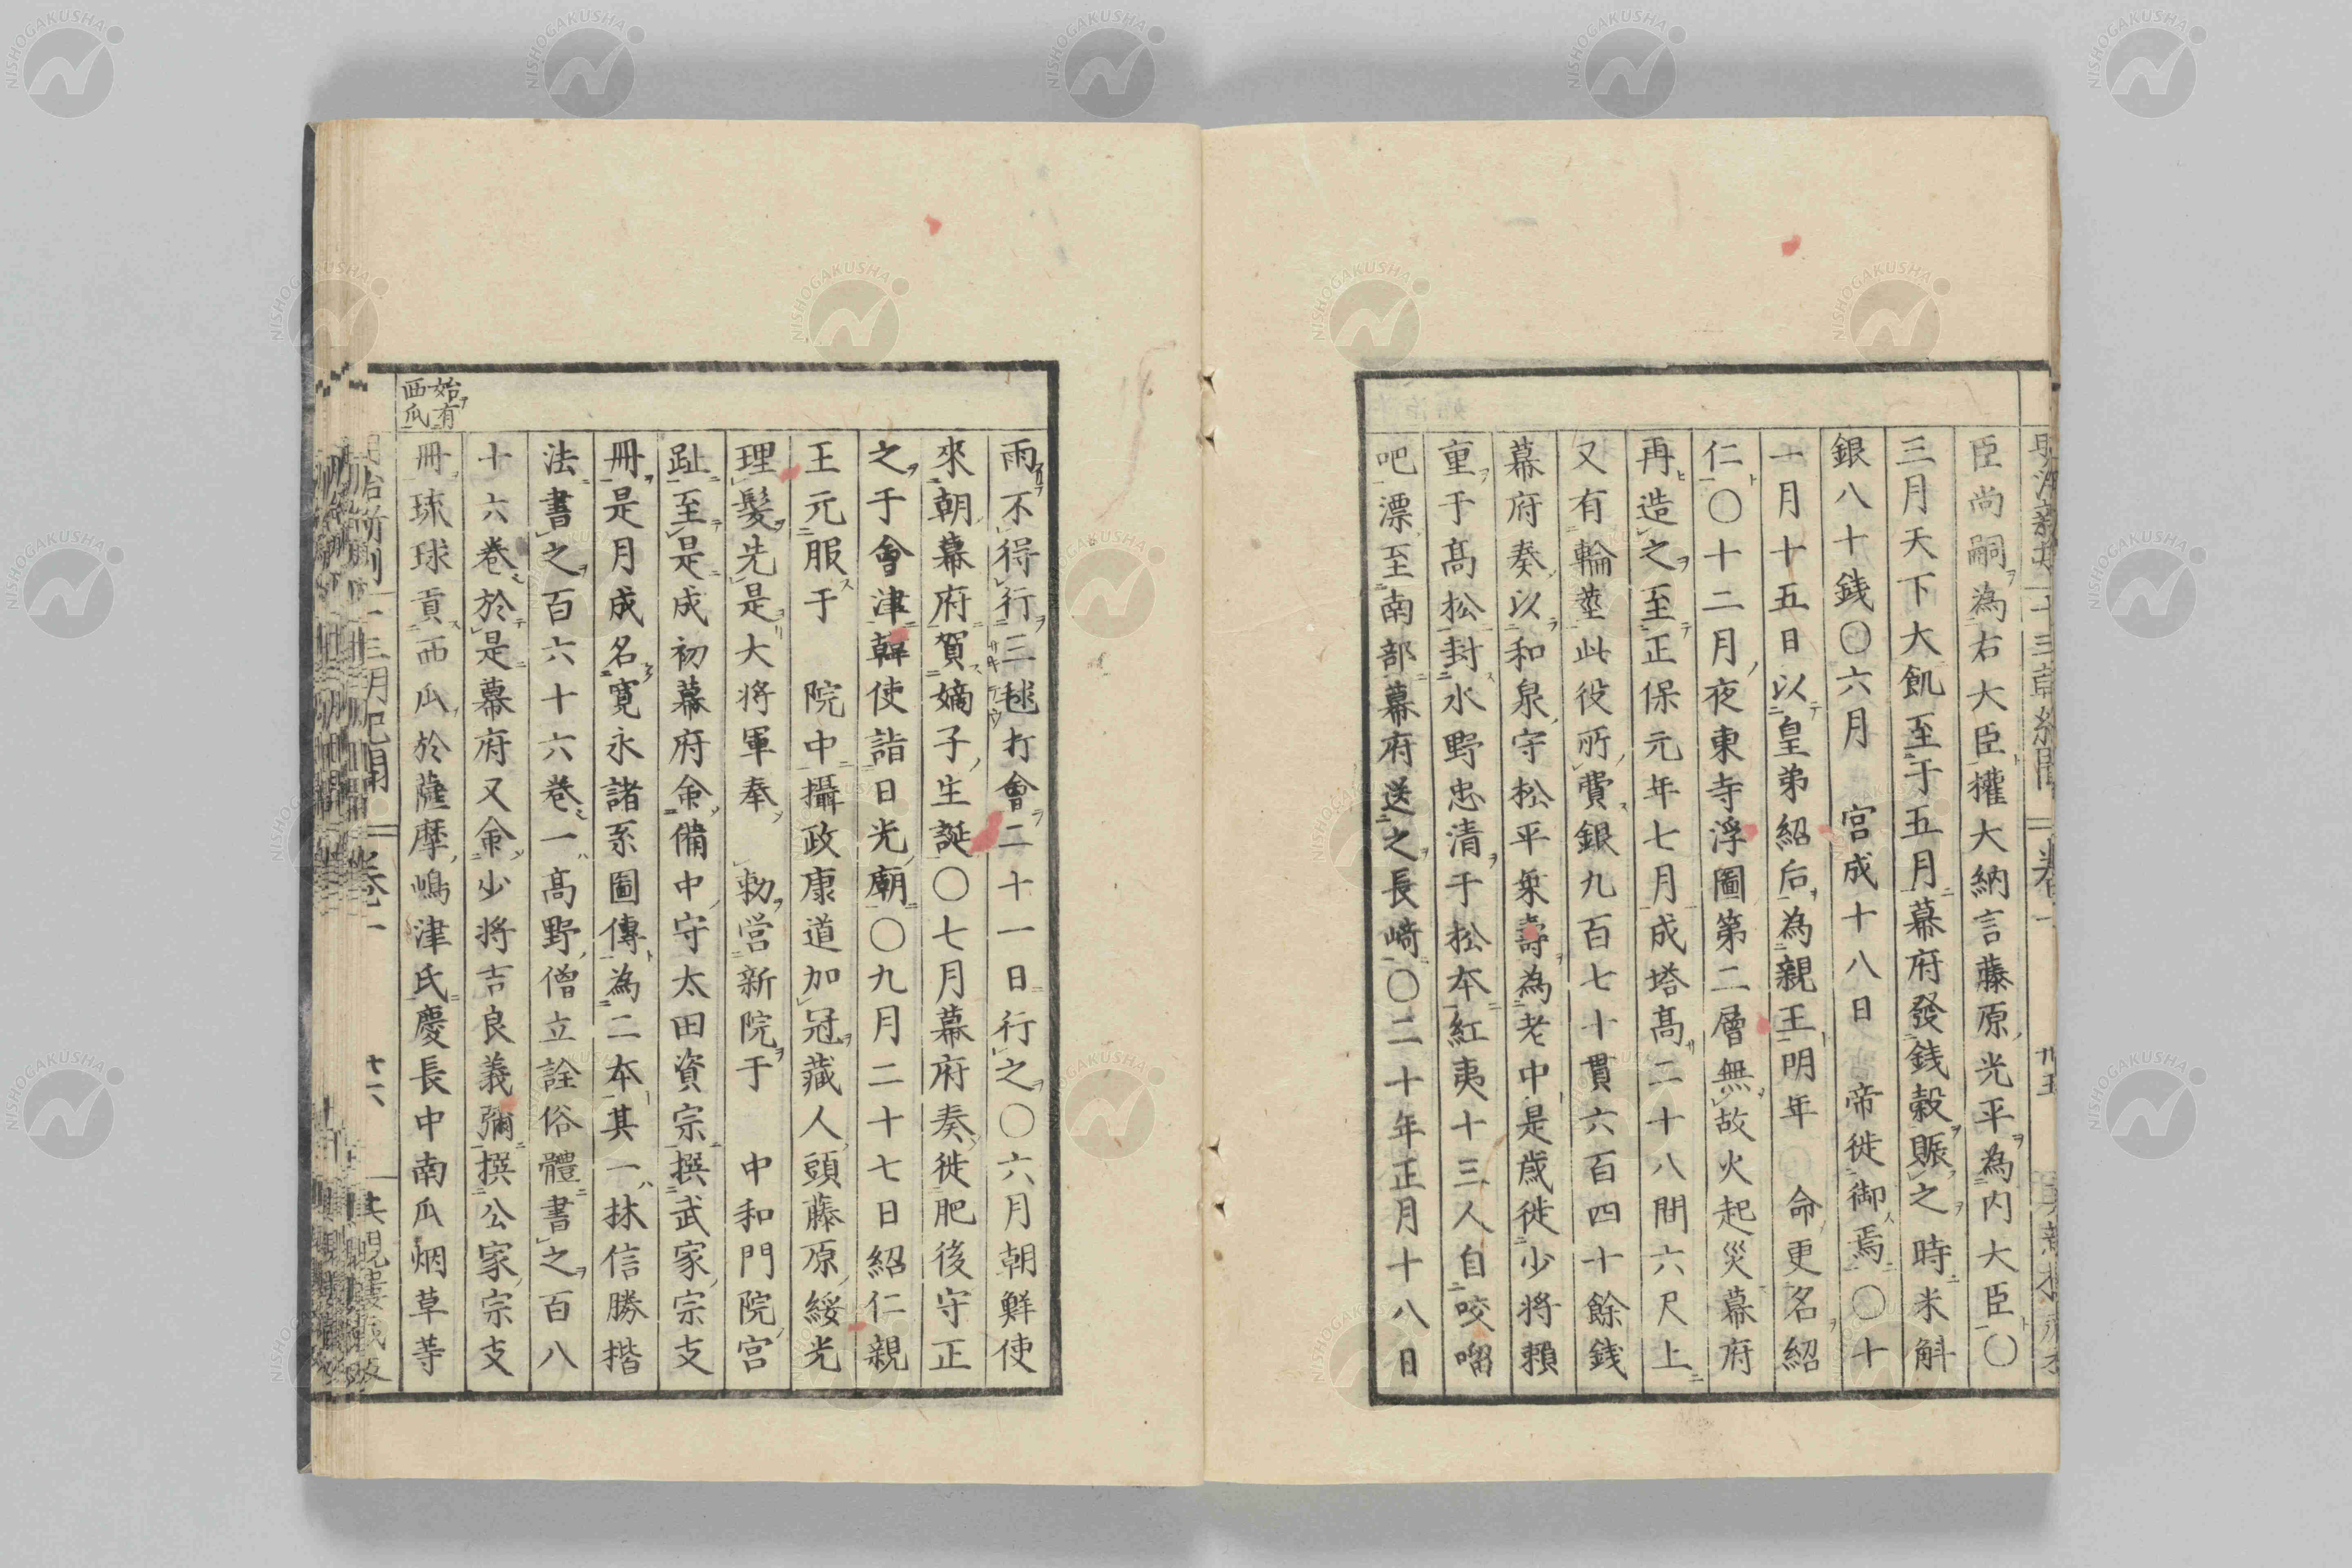 臣尚嗣為右大臣權大納言藤原光平為内大臣〇
三月天下大飢至于五月幕府發銭穀賑之時米斛
銀八十銭〇六月　宮成十八日　帝徙御焉〇十
一月十五日以皇弟紹后為親王明年　命更名紹
仁〇十二月夜東寺浮圖第二層無故火起災幕府
再造之至正保元年七月成塔高二十八間六尺上
又有輪埀此役所費銀九百七十貫六百四十餘銭
幕府奏以和泉守松平乗壽為老中是歳徙少将頼
重于髙松封水野忠清于松本紅夷十三人自咬𠺕
吧漂至南部幕府送之長崎〇二十年正月十八日
始有
西瓜
雨不得行三毬打會二十一日行之〇六月朝鮮使
來朝幕府賀嫡子生誕〇七月幕府奏徙肥後守正
之于會津韓使詣日光廟〇九月二十七日紹仁親
王元服于　院中攝政康道加冠藏人頭藤原綏光
理髮先是大将軍奉　勅営新院于　中和門院宮
趾至是成初幕府命備中守太田資宗撰武家宗支
冊是月成名寛永諸系圖傳為二本其一抹信勝揩
法書之百六十六巻一髙野僧立詮俗體書之百八
十六巻於是幕府又命少将吉良義彌撰公家宗支
冊琉球貢西瓜於薩摩嶋津氏慶長中南瓜烟草等
NISHOGAKUSHA